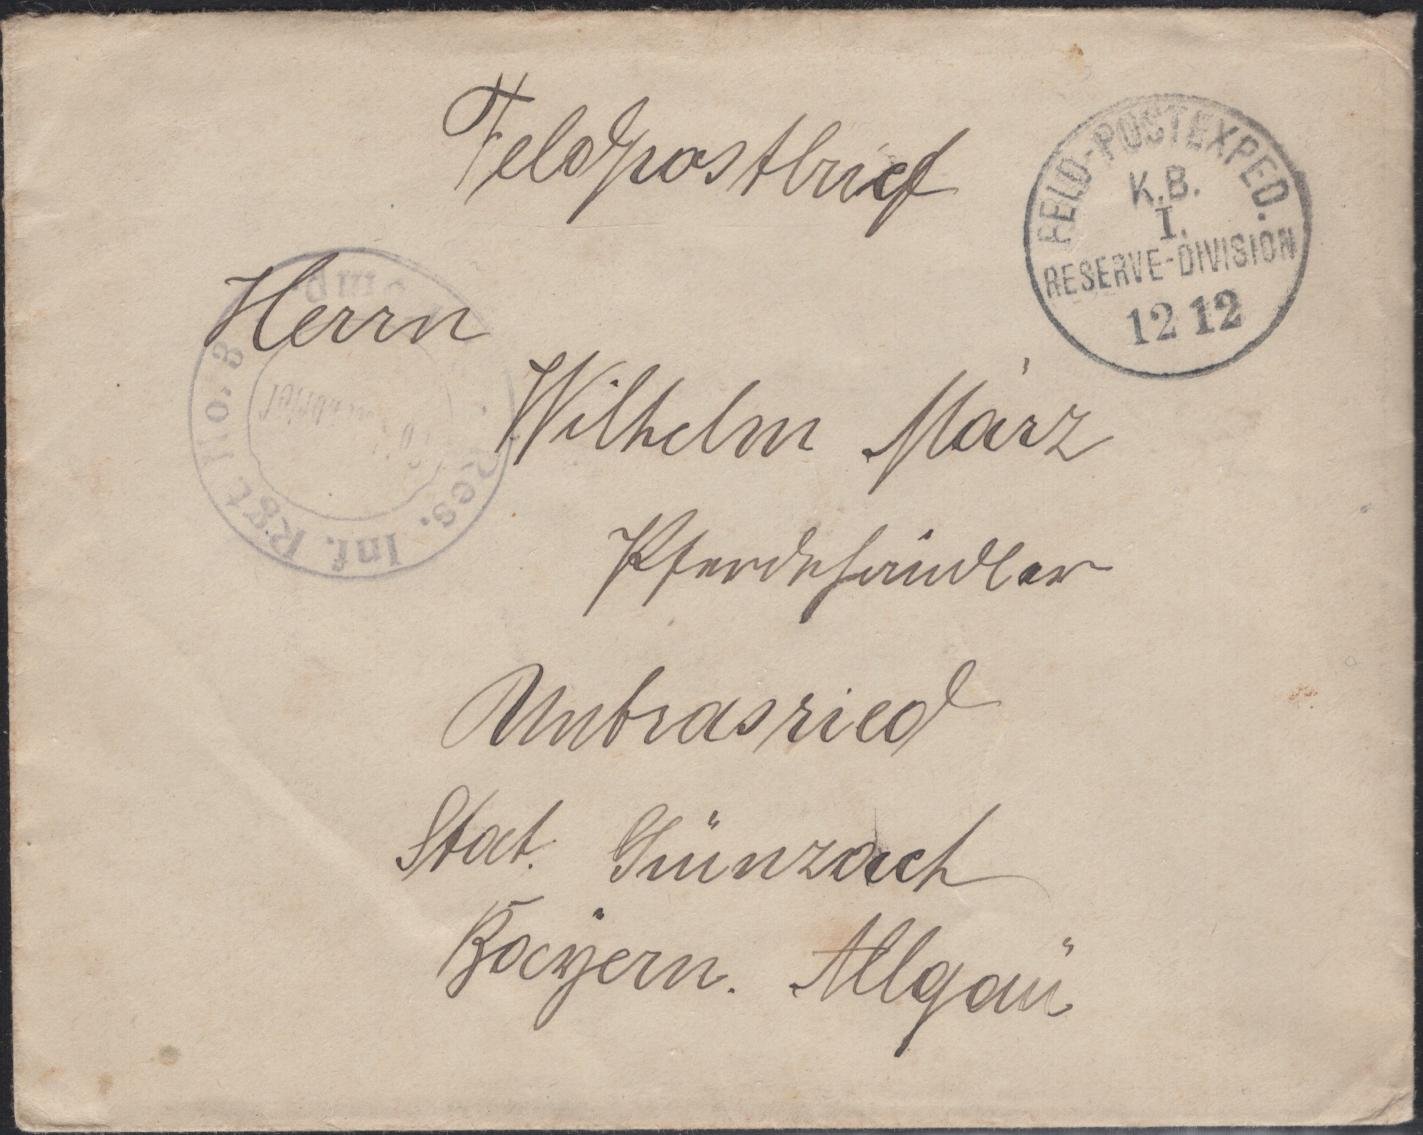 Feldpostbrief
FELD-POSTEXPED.
K.B.
I.
RESERVE-DIVISION
12 12
Herrn
Res. Inf. Rgt. No. 3
Wilhelm März
Pferdehändler
Umbrasried
Stat. Günzach
Bayern. Allgäu